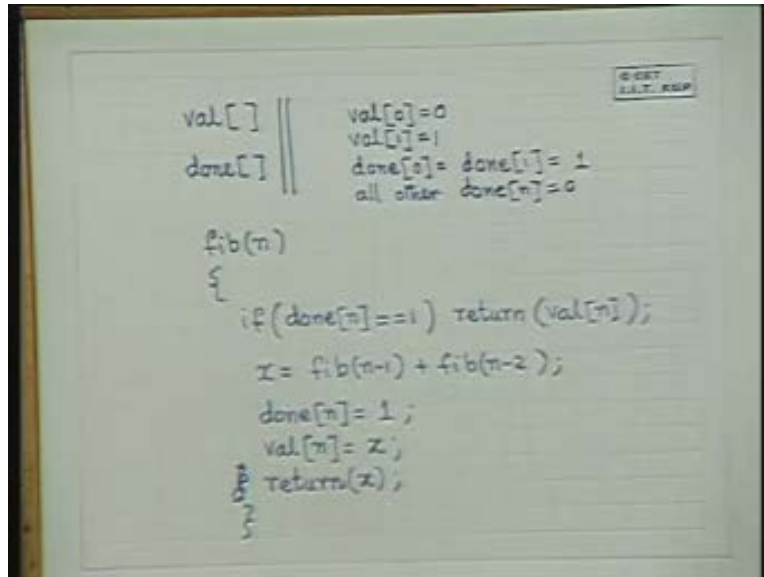 © CET
I.I.T. KGP
val[ ]
val[0]=0
val[1]=1
done[ ]
done[0]= done[1]= 1
all other done[n]=0
fib(n)
{
if(done[n]==1) return(val[n]);
x= fib(n-1) + fib(n-2);
done[n]= 1;
val[n]= x;
return(x);
}